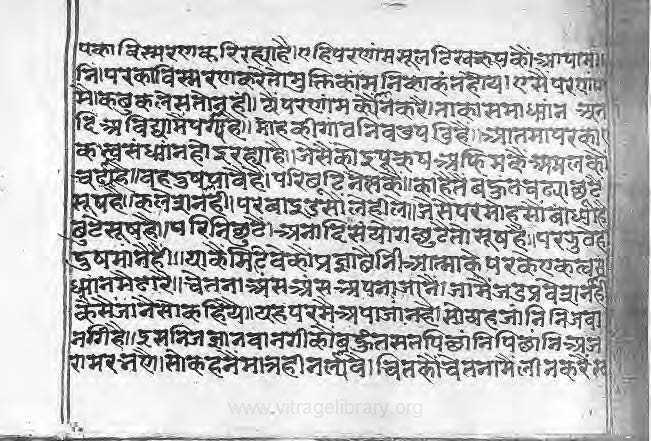 पका विस्मरण करि रह्या है। ए हि परणाम मूल टि स्वरूप कौं आपा मां
नि। पर का विस्मरण करै तौ मुक्ति का म नि का कं न होय। ए सै परणाम
मै। कछु कलेस तौ नही। ये परणाम कौं न करै। ताका समाधान अना
दि अविद्या मै पगी है। मोह की गांठ निवड पडि है। आतमा पर का ए
कत्व संध्यान हो इ रह्या है। जैसै कोइ पुरुष अफिम कै अमल कौ
चढी है॥ बहु दुष पावै है। परि छूटि न सकै॥ काहे तै बहुत चढ्या छूटै
सूष है। कलेश नही। पर वाइ डसो लही लौ॥ जैसै पर मोह सौ बांध्या है
छूटे सूष है। परि नि छुटै। अनादि संयोग छुटे तौ सूष है॥ पर
दुष मानै है॥ या कै मिटवे कौ प्रज्ञा छैनी आत्मा के पर के एकत्व सं
ध्यान मै डारै॥ चेतना अंस अंस अपना जानै। जामै जड प्रवेश नही
कैसै जानै सो कहिये॥ यह पर मै आपा जानै है। सो यह जांनि निज वा
नगि है॥ इम निज ज्ञान वानगी कौं बहुत संत पिछांनि पिछांनि अज
रामर भए। सो कहनै मात्र ही न ल्यावै। चित कौ चेतना मै लीन करै स
www.vitragelibrary.org